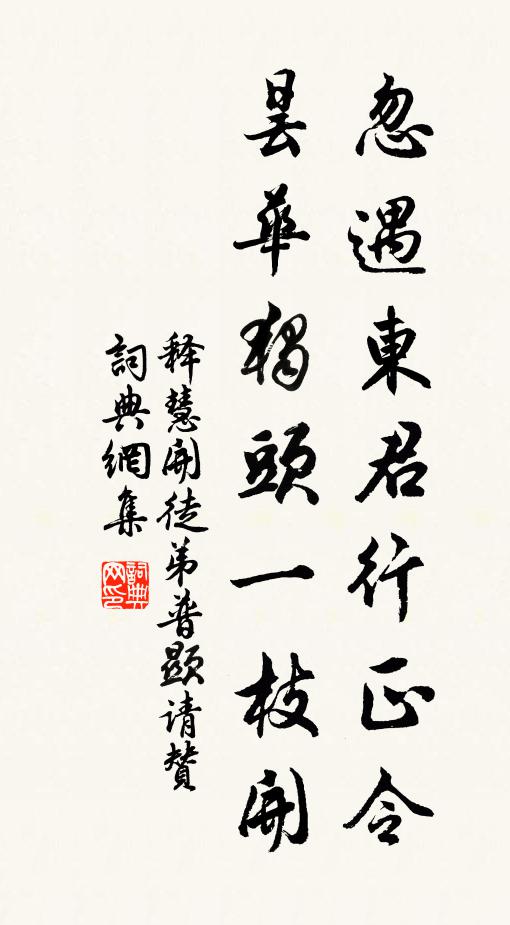 忽遇東君行正令
曇華獨頭一枝開
释慧開徒弟普顯请贊
詞典網集
詞典网印